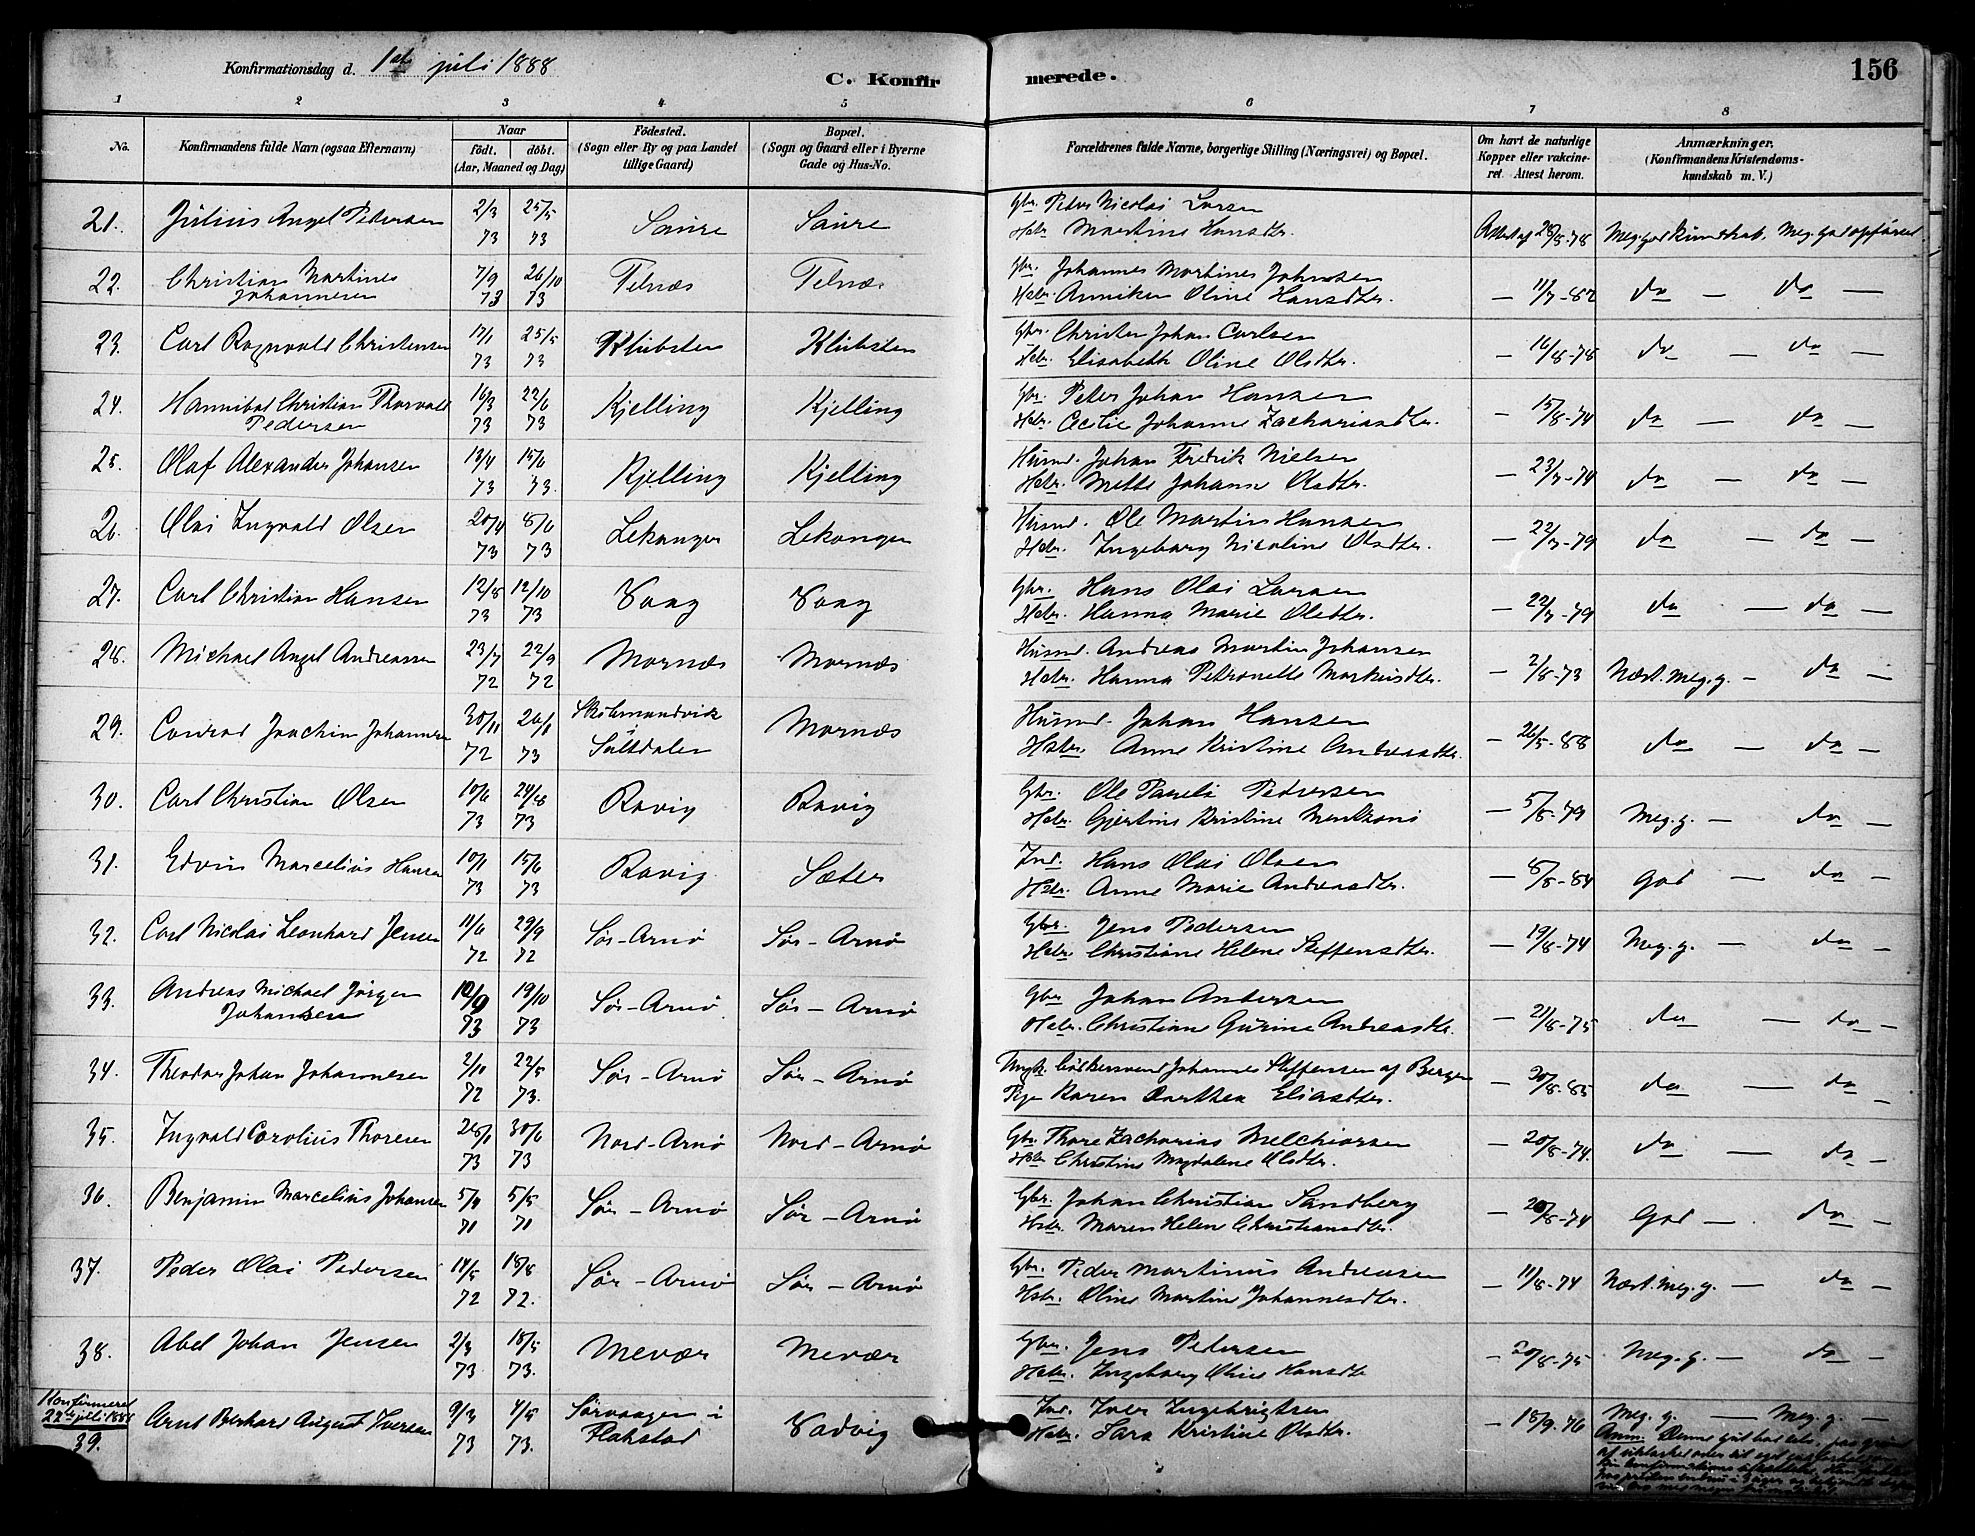 Konfirmationsdag d. 1ste juli 1888
C. Konfirmerede.
156
1 2 3 4 5 6 7 8
No.
Konfirmandens fulde Navn (ogsaa Efternavn)
Naar
født. døbt.
(Aar, Maaned og Dag)
Fødested.
(Sogn eller By og paa Landet
tillige Gaard)
Bopæl.
(Sogn og Gaard eller i Byerne
Gade og Hus-No.
Forældrenes fulde Navne, borgerlige Stilling (Næringsvei) og Bopæl.
Om havt de naturlige
Kopper eller vakcine-
ret. Attest herom.
Anmærkninger.
(Konfirmandens Kristendoms-
kundskab m. V.)
21. Julius Angel Pedersen 2/3 73 25/5 73 Saure Saure Gbr. Peder Nicolai Larsen
Hstr. Martine Hansdtr. Attest af 28/8-78 Meg. god kundskab. Meg. god opførsel
22. Christian Martines
Johannesen 7/9 73 26/10 73 Felnæs Felnæs Gbr. Johannes Martines Johnsen
Hstr. Anniken Oline Hansdtr. — 11/7-82 do — do —
23. Carl Ragnvald Christensen 17/1 73 25/5 73 Klubsten Klubsten Gbr. Christen Johan Carlsen
Hstr. Elisabeth Oline Olsdtr. — 16/8-78 do — do —
24. Hannibal Christian Thorvald
Pedersen 16/3 73 22/6 73 Kjelling Kjelling Gbr. Peter Johan Hansen
Hstr. Cecilie Johanne Zachariasdtr. — 15/8-74 do — do
25. Olaf Alexander Johansen 13/4 73 15/6 73. Kjelling Kjelling Husmd. Johan Fredrik Nielsen
Hstr. Mette Johanna Olsdtr. — 23/7-74 do — do —
26. Olai Ingvald Olsen 20/4 73 8/6 73 Lekanger Lekanger Husmd. Ole Martin Hansen
Hstr. Ingeborg Nicoline Olsdtr. — 22/7-79 do — do —
27. Carl Christian Hansen 12/8 73 12/10 73 Vaag Vaag Gbr. Hans Olai Larsen
Hstr. Hanna Marie Olsdtr. — 22/7-79 do — do —
28. Michael Angel Andreassen 23/7 72 22/9 72 Mornæs Mornæs Husmd. Andreas Martin Johansen
Hstr. Hanna Petronelle Markusdtr. — 2/8-73 Næst. meg. g. — do —
29. Conrad Joachim Johansen 30/11 72 26/1 73 Skodmandvik
Saltdalen Mornæs Husmd. Johan Hansen
Hstr. Anne Kristine Andreasdtr. — 26/5-88 do — do —
30. Carl Christian Olsen 10/6 73 24/8 73 Ravig Ravig Gbr. Ole Pauli Pedersen
Hstr. Gjertine Kristine Mentzoni — 5/8-79 Meg. g. — do —
31. Edvin Marcelius Hansen 10/1 73 15/6 73 Ravig Sæter Ind. Hans Olai Olsen
Hstr. Anne Marie Andreasdtr. — 8/8-84 God — do —
32. Carl Nicolai Leonhard Jensen 11/6 72 29/9 72 Sør-Arnø Sør-Arnø Gbr. Jens Pedersen
Hstr. Christiane Helene Steffensdtr. — 19/8-74 Meg. g. — do —
33. Andreas Michael Jørgen
Johansen 10/9 73 19/10 73 Sør-Arnø Sør-Arnø Gbr. Johan Andersen
Hstr. Christiane Gurine Andreasdtr. — 21/8-75 do — do —
34. Theodor Johan Johannesen 2/10 72 22/5 73. Sør-Arnø Sør-Arnø Ungk. Johannes Steffensen af Bergen
Pige Karen Dorthea Eliasdtr. — 20/8-85 do — do —
35. Ingvald Carolius Thoresen 26/1 73 30/6 73 Nord-Arnø Nord-Arnø Gbr. Thore Zacharias Melchiorsen
Hstr. Christine Magdalene Olsdtr. — 20/8-74. do — do —
36. Benjamin Marcelius Johansen 5/3 71 5/5 71 Sør-Arnø Sør-Arnø Gbr. Johan Christian Sandberg
Hstr. Maren Helene Christiansdtr. — 20/8-74 God — do —
37. Peder Olai Pedersen 14/5 72 18/8 72. Sør-Arnø Sør-Arnø Gbr. Peder Martinus Andreasen
Hstr. Oline Martine Johannesdtr. — 11/8-74 Næst. meg. g. — do —
38. Abel Johan Jensen 2/3 73 18/5 73. Mevær Mevær Gbr. Jens Pedersen
Hstr. Ingeborg Oline Hansdtr — 20/8-75 Meg. g. — do —
Konfirmeret
22de juli 1888
39. Arnt Berhard August Iversen 9/3 73 4/5 73. Sørvaagen i
Flakstad Vadvig Ind. Iver Ingebrigtsen
Hstr. Sara Kristine Olsdtr. — 18/9-76 Meg. g. — Meg. g. —
Anm. Denne gut